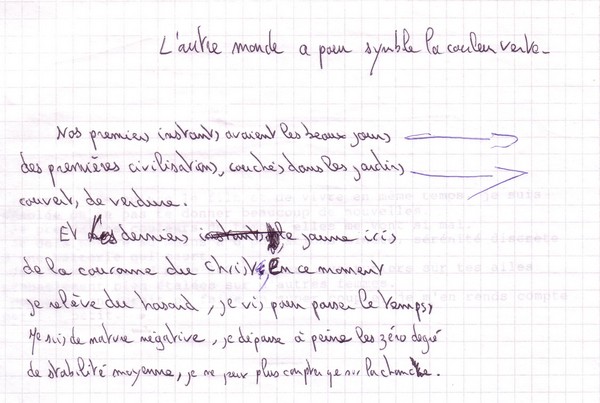 L'autre monde a pour symble la couleur verte -
Nos premiers instants avaient les beaux jours
des premières civilisations, couchés dans les jardins
couverts de verdure.
Et les derniers instants le jaune iris
de la couronne du Christ, En ce moment
je relève du hasard, je vis pour passer le temps,
Je suis de nature négative, je dépasse à peine les zéro degré
de stabilité moyenne, je ne peux plus compter que sur la chance.